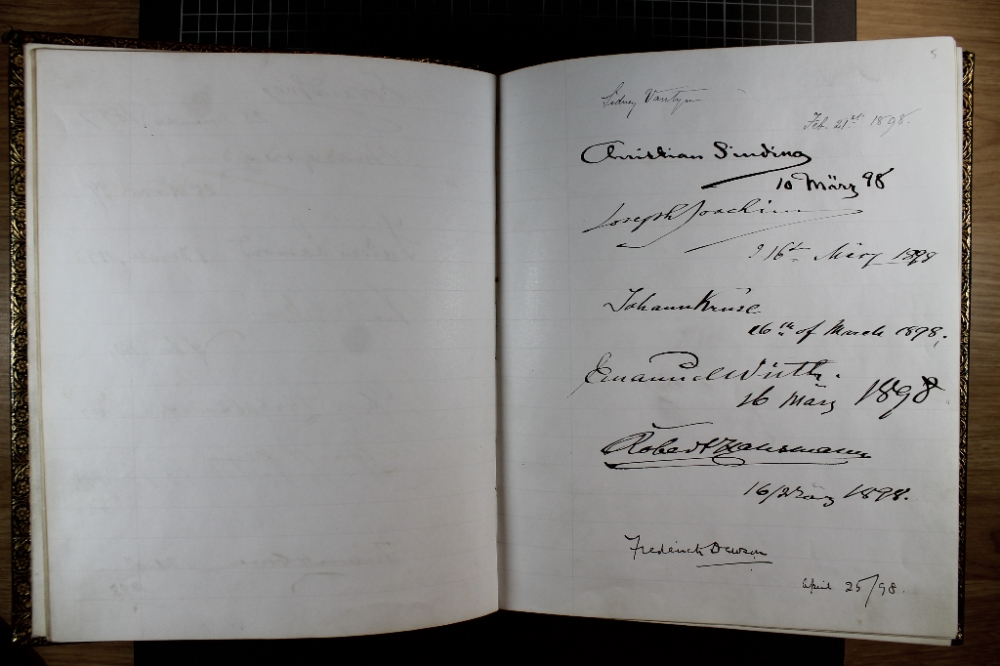 5
Sidney Vantyn
Feb. 21st 1898.
Christian Sinding
10 März 98
Joseph Joachim
16th März 1898
Johann Kruse
16th of March 1898.
Emanuel Wirth.
16 März 1898
Robert Hausmann
16/März 1898.
Frederick Dawson
April 25/98.